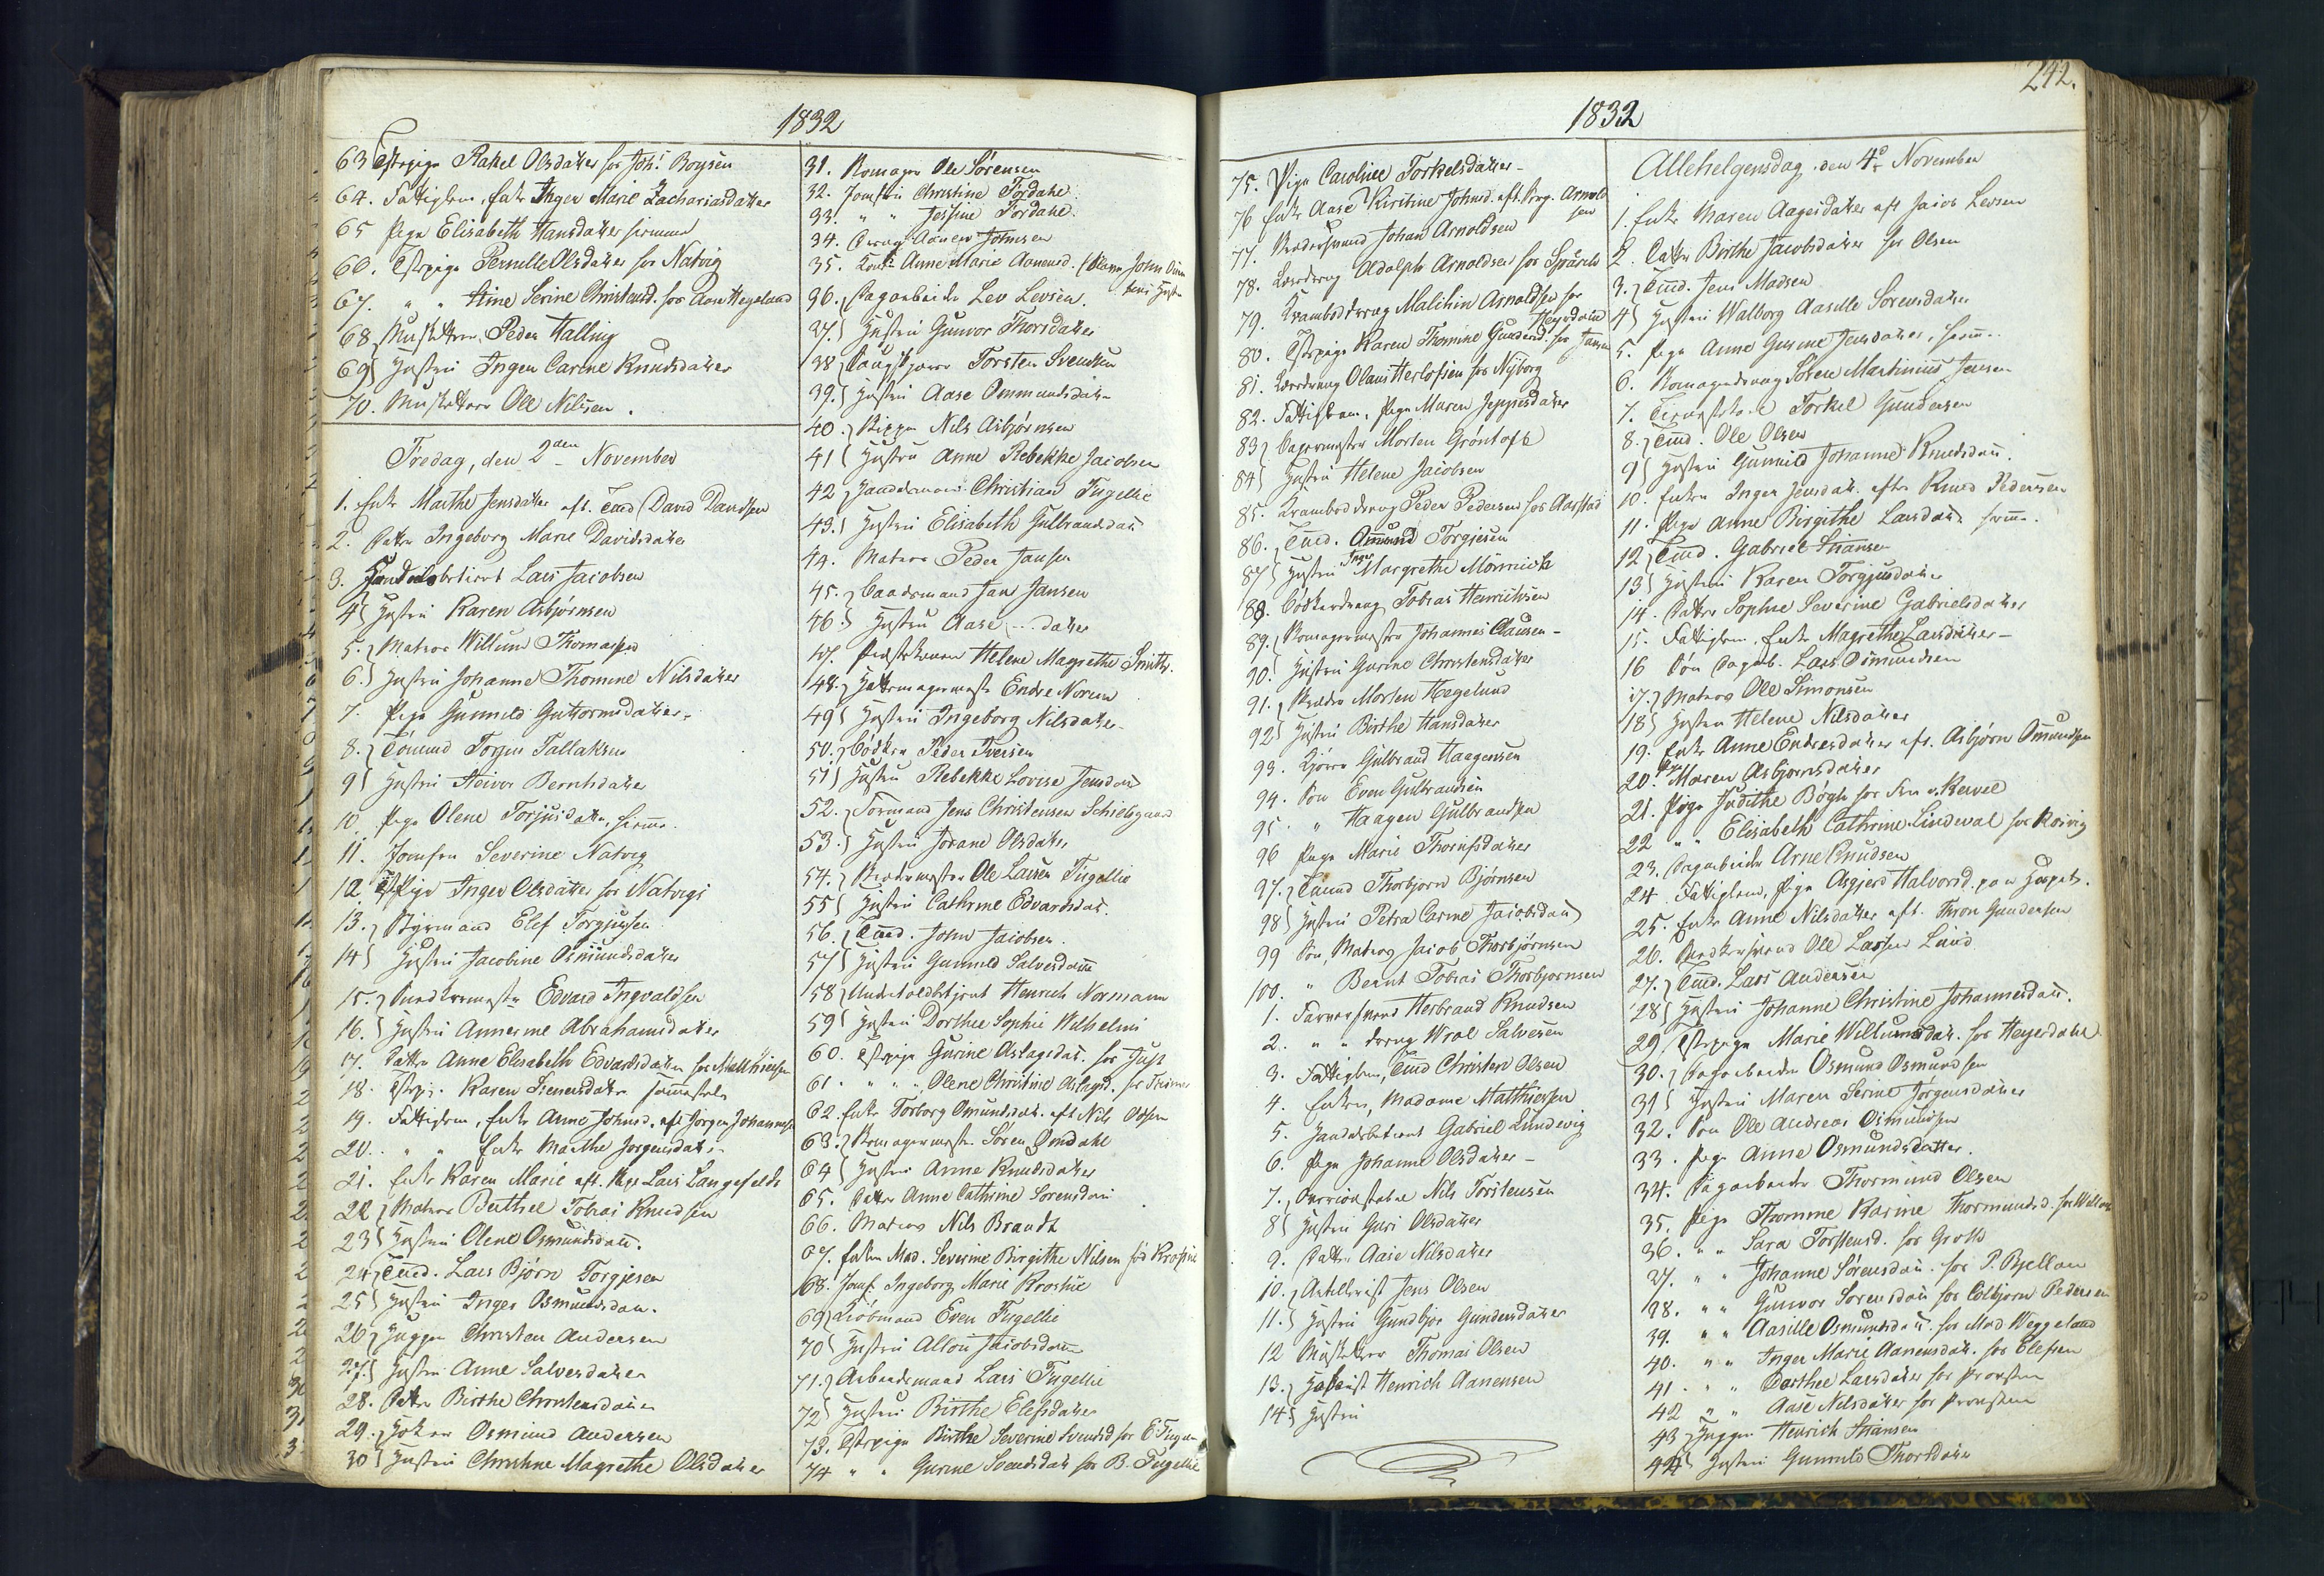 1832
63 Tstpige Rakel Olsdatter for Joh: Boysen
64. Fattiglem, Enke Inger Marie Zachariasdatter
65 Pige Elisabeth Hansdatter hiemme
66. Tstpige Pernille Olsdatter for Natvig
67. " " Stine Serine Christensd. for Aase Hegelund
68 Musketeer Peder Halling
69 Hustru Inger Carine Knudsdatter
70. Musketeer Ole Nilsen.
Fredag, den 2den November
1. Enke Marthe Jensdatter eft. Tmd David Davidsen
2. Datter Ingeborg Marie Davidsdatter
3. Handelsbetient Lars Jacobsen
4 Hustru Karen Asbjørnsen
5. Matros Willum Thomassen
6. Hustru Johanne Thomine Nilsdatter
7. Pige Gunnild Guttormsdatter
8. Tømmd Torgen Tallaksen
9 Hustru Steivor Berntsdatter
10 Pige Olene Torjusdatter, hiemme
11. Jomfru Severine Natvig
12. Tstpige Inger Olsdatter for Natvigs
13. Styrmand Elef Torgiussen
14 Hustru Jacobine Osmundsdatter
15. Snedkermester Edvard Ingvaldsen
16. Hustru Annerine Abrahamsdatter
17. Datter Anne Elisabeth Edvardsdatter for
18. Tstpi. Karen
19. Fattiglem, Enke Anne Johnsd. eft Jørgen Johannesen
20. " " Enke Marthe Jørgensdatter
21. Enke Karen Marie eft. Lars Langefeldt
22 Matros Berthel Tobias Knudsen
23 Hustru Olene Osmundsdatt.
24 Tmd. Lars Bjørn Torgjesen
25 Hustru Inger Osmundsdatt.
26 Hugger Christen Andersen
27. Hustru Anne Salvesdatter
28. Datter Birthe Christensdatter
29. Osmund Andersen
30 Hustru Christine Magrethe Olsdatter
31. Komager Ole Sørensen
32. Jomfru Christine Fordahl
33. " " Jessine Fordahl
34. Dreng Aanen Johnsen
35. Anne Marie Aanensd. John
36. Dagarbeider Lev Levsen.
37. Hustru Gunvor Thorsdatter
38 Torsten Svendsen
39. Hustru Aase Ommundsdatter
40. Nils Asbjørnsen
41 Hustru Anne Rebekke Jacobsen
42 Handelsmand Christian Fugellie
43. Hustru Elisabeth Gulbrandsdatt
44. Matros Peder Jansen
45. Baadsmand Jan Jansen
46. Hustru Aase ... datter
47. Helene Magrethe Smith.
48. Hattemagermester Endre Norum
49 Hustru Ingeborg Nilsdatter
50. Bødker Peder Iversen
51 Hustru Rebekke Lovise Jensdatt
52. Formand Jens Christensen Schielsgaard
53. Hustru Jorane Olsdatter
54. Ole Larsen Fugellie
55 Hustru Cathrine Edvardsdat.
56. Tmd. John Jacobsen.
57 Hustru Gunnild Salvesdatt
58 Underfoldbetjent Henrich Normann
59 Hustru Dorthee Sophie Wilhelmi
60. Tstpige Gurine Aslagsdat. for Just
61. " " Olene Christine Aslagsd. for
62. Enke Torborg Omundsdat. eft Nils Olsen
63. Komagermester Søren Omdahl
64 Hustru Anne Knudsdatter
65. Datter Anne Cathrine Sørensdatt
66. Matros Nils Brandt
67. Enken Mad. Severine Birgithe Nilsen fød
68. Jomf. Ingeborg Marie
69 Kiøbmand Even Fugellie
70 Hustru Jacobsdatt
71. Arbeidsmand Lars Fugellie
72 Hustru Birthe Elefsdatter
73. Tstpige Birthe Severine Svendsd for E. Fugellie
74 " " Gurine Svendsdat for B. Fugellie
242.
1832
75. Pige Caroline Torkelsdatter
76 Enke Aase Kirstine Johnsd. eft. Arnoldsen
77. Johan Arnoldsen
78. Læredreng Adolph Arnoldsen for
79. Krambodsdreng Malchin Arnoldsen for Heyerdahl
80. Tstpige Karen Thomine Gundersd. for Jansen
81. Læredreng Olaus Herlofsen for Nyborg
82. Fattiglem, Pige Maren Jeppesdatter
83 Bagermester Morten Grøntoft
84 Hustru Helene Jacobsen
85. Krambodsdreng Peder Pedersen for Aarstad
86. Tmd. Omund Torgjesen
87 Hustru Inger Margrethe Mørnich
88. Bødkerdreng Tobias Henrichsen
89. Komagermester Johannes Clausen
90. Hustru Gurine Christensdatter
91. Morten Hegelund
92 Hustru Birthe Hansdatter
93. Gulbrand Haagensen
94. Søn Even Gulbrandsen
95. " Haagen Gulbrandsen
96 Pige Marie Thorersdatter
97. Tmmd Thorbjørn Bjørnsen
98 Hustru Petra Carine Jacobsdatt
99 Søn, Matros Jacob Thorbjørnsen
100. " Bernt Tobias Thorbjørnsen
1. Farversvend Herbrand Knudsen
2. " " dreng Wrol Salvesen
3. Fattiglem, Tmd Christen Olsen
4. Enken, Madame Matthiessen
5. Handelsbetient Gabriel Lundevig
6. Pige Johanne Olsdatter
7. Nils Torstensen
8 Hustru Guri Olsdatter
9. Datter Aase Nilsdatter
10. Artillerist Jens Olsen
11. Hustru Gundbjør Gundersdatter
12 Musketeer Thomas Olsen
13. Henrich Aanensen
14 Hustru
Allehelgensdag den 4de November
1. Enke Maren Aagesdatter eft Jacob Levsen
2. Datter Birthe Jacobsdatter for Olsen
3. Tmd. Jens Madsen
4 Hustru Walborg Aasille Sørensdatter
5. Pige Anne Gurine Jensdatter, hiem.
6. Komagerdreng Søren Martinius Jensen
7. Torkel Gundersen
8. Tmd. Ole Olsen
9 Hustru Gunnild Johanne Knudsdatt.
10. Enken Inger Jensdatt. efter Knud Pedersen
11. Pige Anne Birgithe Larsdatt. hiem.
12 Tmd. Gabriel Stiansen
13 Hustru Karen Torgjusdatter
14. Datter Sophie Severine Gabrielsdatter
15. Fattiglem. Enke Magrethe Larsdatter
16 Søn Dagarb. Lars Osmundsen
17. Matros Ole Simonsen
18 Hustru Helene Nilsdatter
19. Enke Anne Endresdatter eft. Asbjørn Omundsen
20. Pige Maren Asbjørnsdatter
21. Pige Judithe Bøgh for Fru v. Kervel
22 " " Elisabeth Cathrine Lindeval for Rosvig
23. Dagarbeider Arne Knudsen
24. Fattiglem, Pige Asgjerd Halvorsd. paa Hospit.
25. Enke Anne Nilsdatter eft. Tron Gundersen
26. Snedkersvend Ole Larsen Lund
27. Tmd. Lars Andersen
28 Hustru Johanne Christine Johannesdatt.
29 Tstpige Marie Willumsdat. for Heyerdahl
30. Dagarbeider Osmund Osmundsen
31 Hustru Maren Serine Jørgensdatter
32. Søn Ole Andreas Osmundsen
33. Pige Anne Osmundsdatter.
34. Dagarbeider Thormund Olsen
35. Pige Thomine Karine Thormundsd. for
36. " " Sara Torstensd. for Groth
37. " " Johanne Sørensdatt. for P. Bjelland
38. " " Gunvor Sørensdatt for Colbjørn Pedersen
39. " " Aasille Osmundsdatt. for Mad Weggeland
40. " " Inger Marie Aanensdatt. for Elefsen
41. " " Dorthee Larsdatter for Provsten
42 " " Aase Nilsdatter for Provsten
43 Hugger Henrich Stiansen
44 Hustru Gunnild Thorsdatter